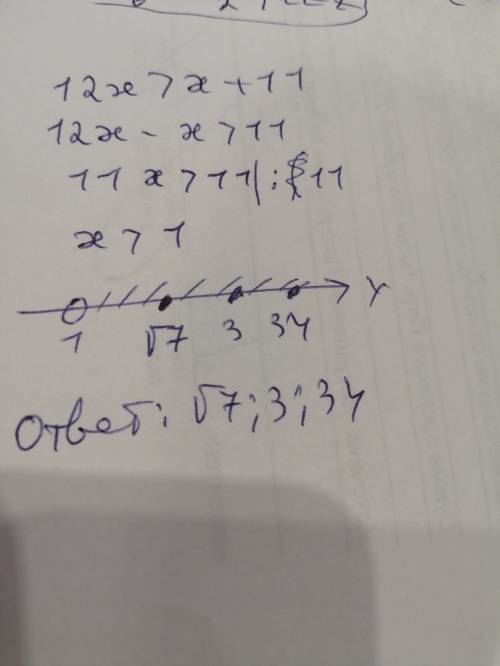 12x > x + 11
12x - x > 11
11 x > 11 | : 11
x > 1
1 √7 3 34
Ответ: √7; 3; 34